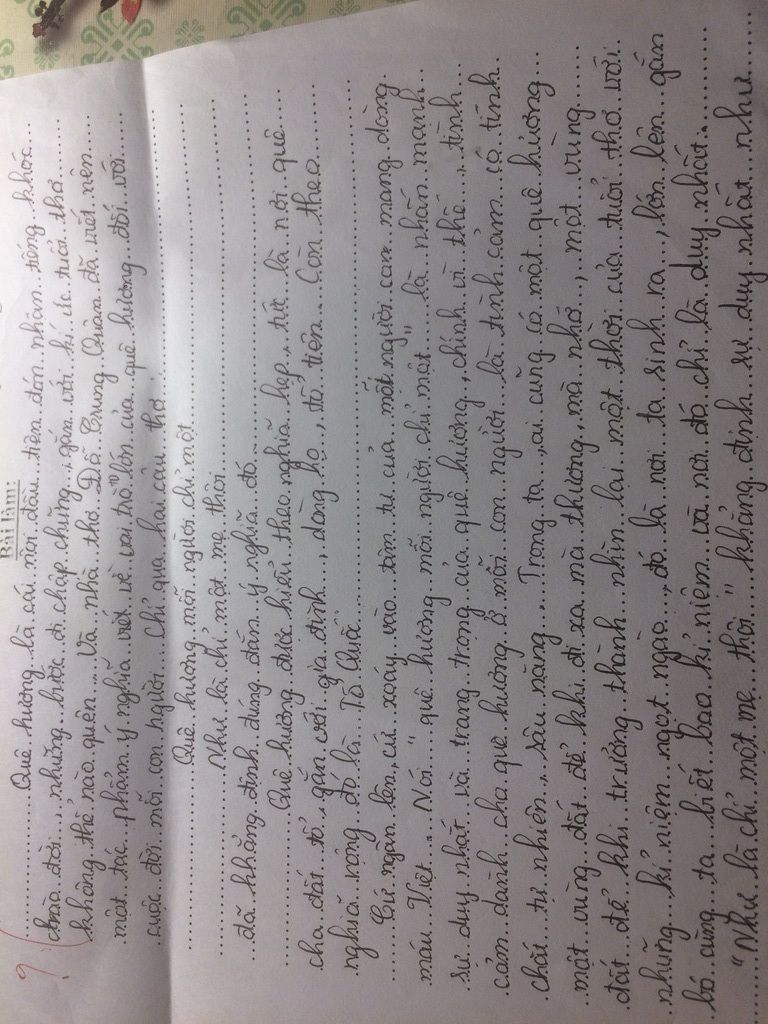 Bài làm:
9
Quê hương là cái nôi đầu tiên đón nhận tiếng khóc
chào đời, những bước đi chập chững, gắn với kí ức tuổi thơ
không thể nào quên. Và nhà thơ Đỗ Trung Quân đã viết nên
một tác phẩm ý nghĩa viết về vai trò lớn của quê hương đối với
cuộc đời mỗi con người. Chỉ qua hai câu thơ
Quê hương mỗi người chỉ một
Như là chỉ một mẹ thôi
đã khẳng định đúng đắn ý nghĩa đó.
Quê hương được hiểu theo nghĩa hẹp, tức là nơi quê
cha đất tổ, gắn với gia đình, dòng họ, tổ tiên. Còn theo
nghĩa rộng đó là Tổ Quốc.
Cứ ngân lên, cứ xoáy vào tâm tư của một người con mang dòng
máu Việt. Nói "quê hương mỗi người chỉ một" là nhấn mạnh
sự duy nhất và trang trọng của quê hương, chính vì thế, tình
cảm dành cho quê hương ở mỗi con người là tình cảm có tính
chất tự nhiên, sâu nặng. Trong ta, ai cũng có một quê hương
một vùng đất để khi đi xa mà thương, mà nhớ, một vùng
đất để khi trưởng thành nhìn lại một thời của tuổi thơ với
những kỉ niệm ngọt ngào, đó là nơi ta sinh ra, lớn lên gắn
bó cùng ta biết bao kỉ niệm và nơi đó chỉ là duy nhất.
"Như là chỉ một mẹ thôi" khẳng định sự duy nhất như